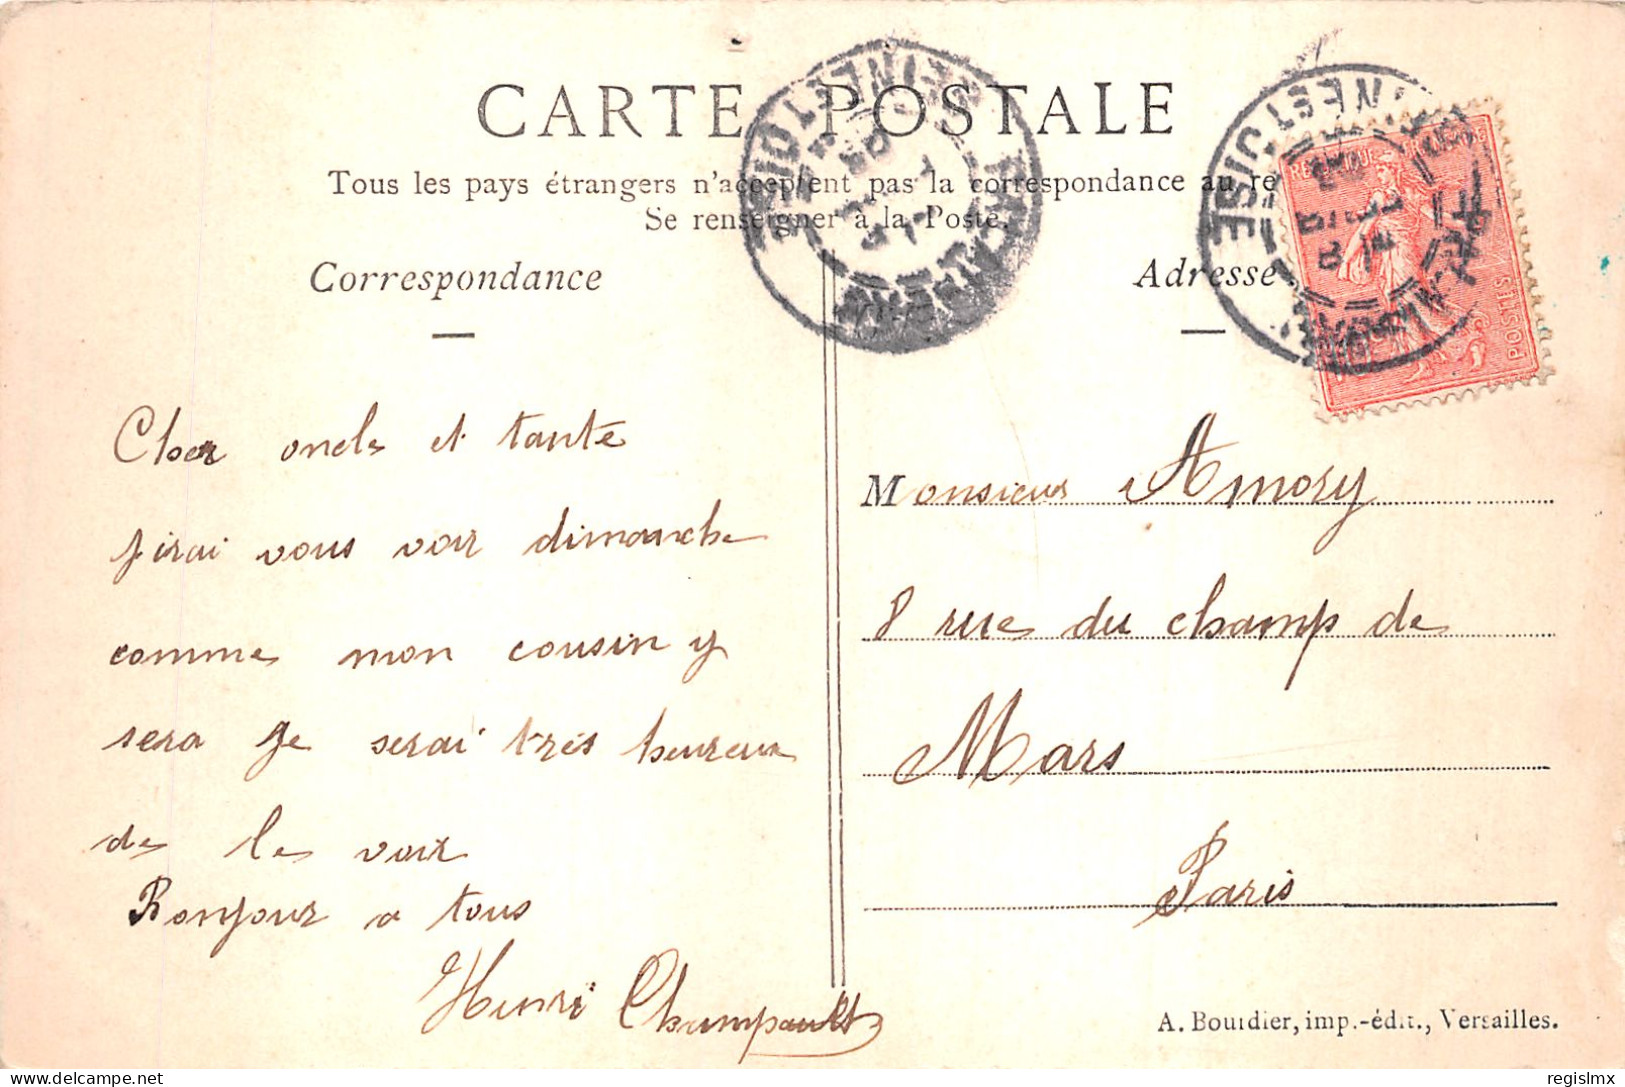 CARTE POSTALE
Tous les pays étrangers n'acceptent pas la correspondance au
Se renseigner à la Poste.
Correspondance
Adresse
SEINE ET OISE
SEINE ET OISE
POSTES
Cher oncle et tante
j'irai vous voir dimanche
comme mon cousin y
sera Je serai très heureux
de le voir
Bonjour a tous
Henri Champault
Monsieur Amory
8 rue du champ de
Mars
Paris
A. Bourdier, imp.-édit., Versailles.
regislmx
delcampe.net